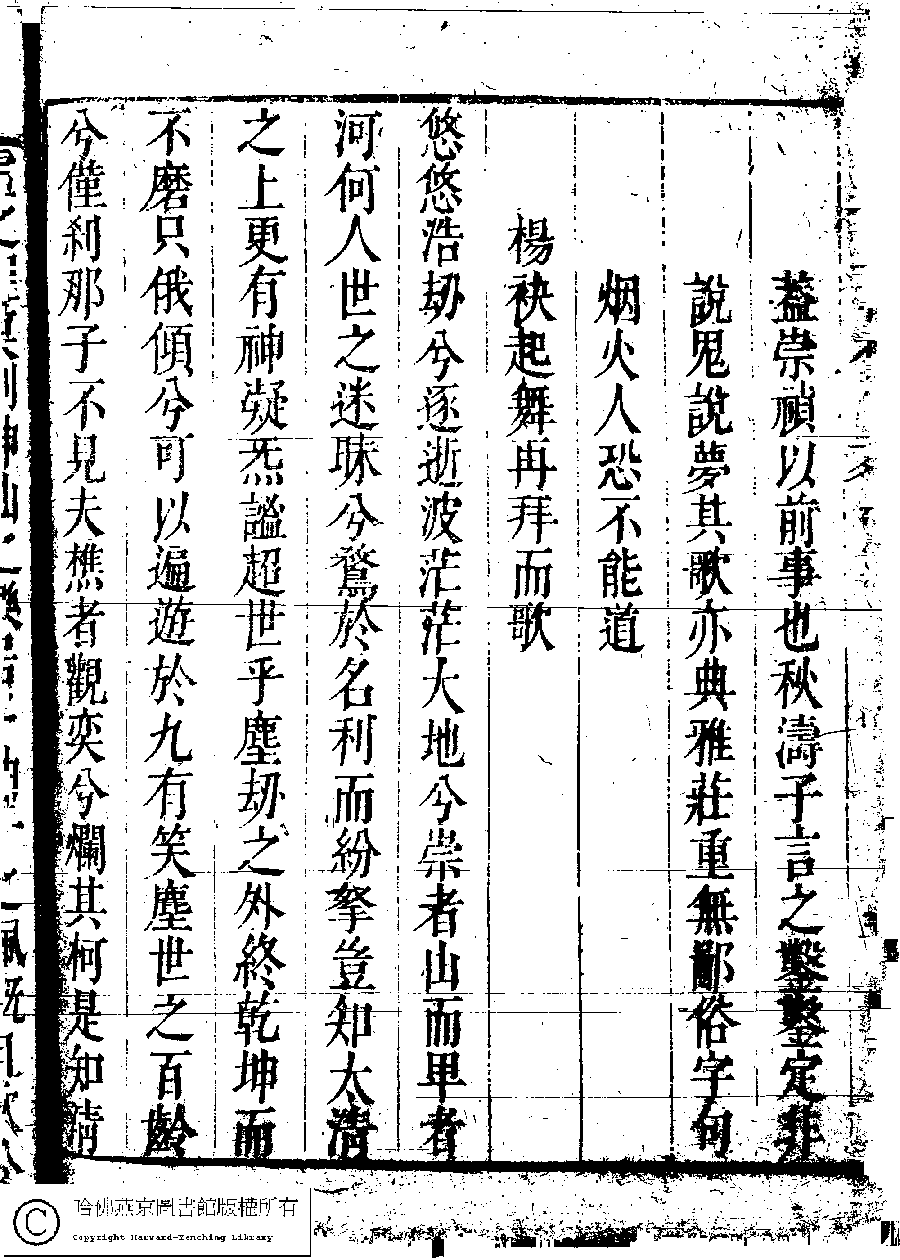 蓋崇禎以前事也秋濤子言之鑿鑿定非
說鬼說夢其歌亦典雅莊重無鄙俗字句
烟火人恐不能道
楊袂起舞再拜而歌
悠悠浩劫兮逐逝波茫茫大地兮崇者山而卑者
河何人世之迷昧兮鶩於名利而紛拏豈知太淸
之上更有神凝炁謐超世乎塵劫之外終乾坤而
不磨只俄傾兮可以遍遊於九有笑塵世之百齡
兮僅刹那子不見夫樵者觀奕兮爛其柯是知淸
哈佛燕京圖書館版權所有
Copyright Harvard-Yenching Library